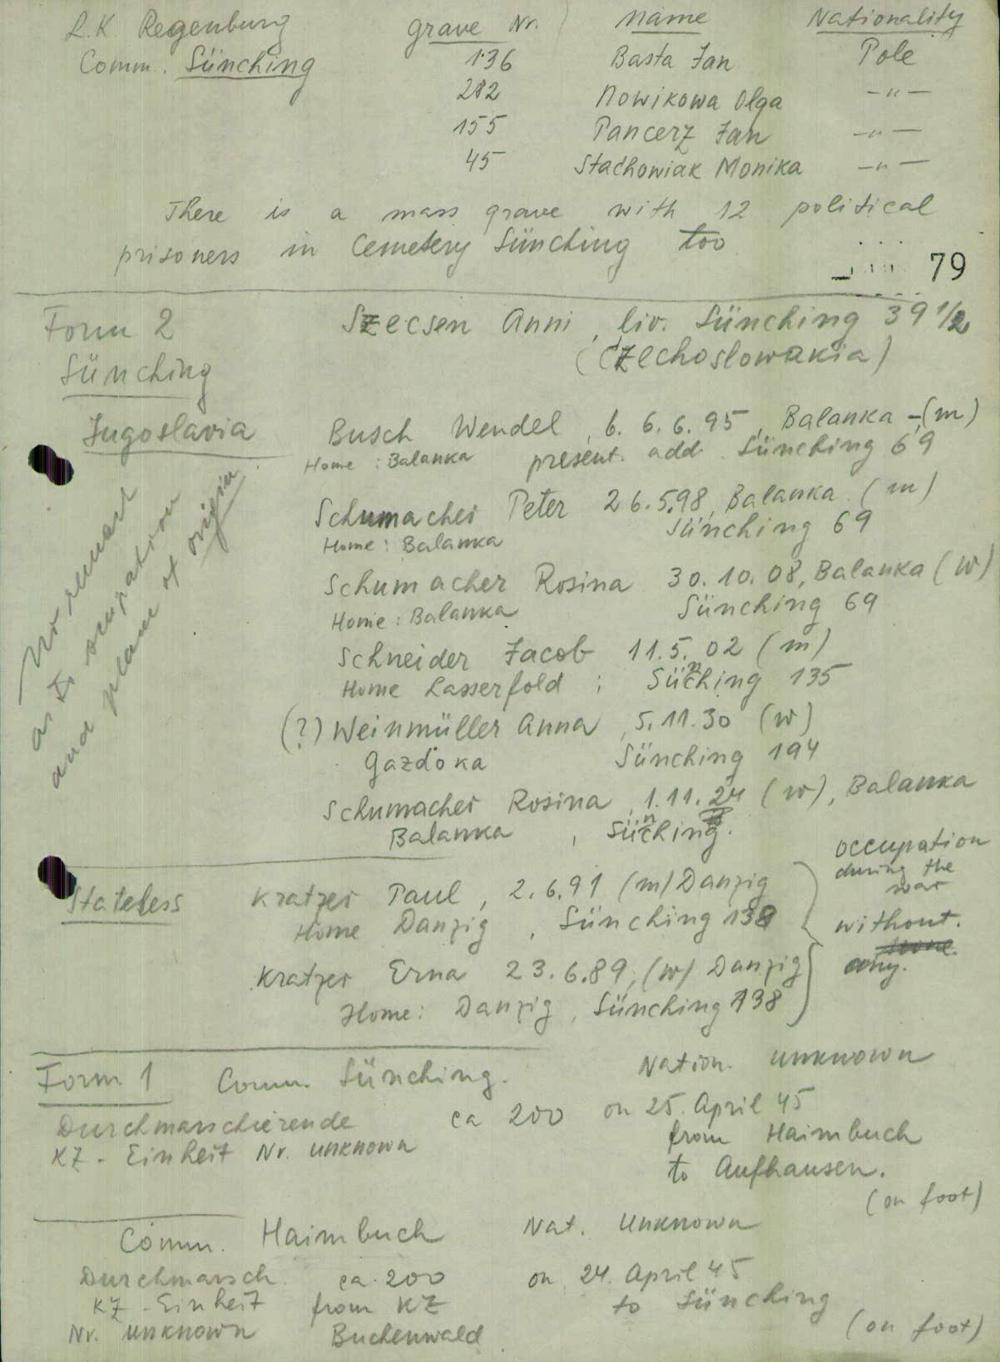 L.K Regenburg grave Nr. Name Nationality
Comm. Sünching 136 Basta Jan Pole
282 Nowikowa Olga -"-
155 Pancerz Jan -"-
45 Stachowiak Monika -"-
There is a mass grave with 12 political
prisoners in Cemetery Sünching too
79
Form 2 Szecsen Anni, liv. Sünching 39 1/2
Sünching (Czechoslowakia)
Jugoslavia Busch Wendel, 6. 6. 6. 95, Balanka - (m)
Home : Balanka present. add. Sünching 69
Schumacher Peter 26.5.98, Balanka (m)
Home : Balanka Sünching 69
Schumacher Rosina 30. 10. 08, Balanka (w)
Home : Balanka Sünching 69
Schneider Jacob 11. 5. 02 (m)
Home Lasserfold ; Sünching 135
(?) Weinmüller Anna, 5. 11. 30 (w)
Gazdoka Sünching 194
Schumacher Rosina, 1. 11. 24 (w), Balanka
Balanka, Sünching.
No remark
as to occupation
and place of origin
Stateless Kratzer Paul, 2. 6. 91 (m) Danzig
Home Danzig, Sünching 138
Kratzer Erna 23. 6. 89, (w) Danzig
Home : Danzig, Sünching 138
occupation
during the
war
without.
any.
Form 1 Comm. Sünching. Nation. unknown
Durchmarschierende ca 200 on 25. April 45
KZ - Einheit Nr. unknown from Haimbuch
to Aufhausen.
(on foot)
Comm. Haimbuch Nat. unknown
Durchmarsch ca. 200 on 24. April 45
KZ - Einheit from KZ to Sünching
Nr. unknown Buchenwald (on foot)